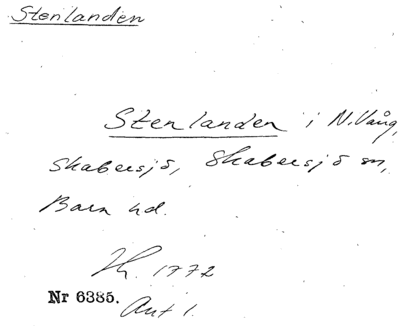 Stenlanden
Stenlanden i N. Vång,
Skabersjö, Skabersjö sn,
Bara hd.
1772
Nr 6385. Akt 1.